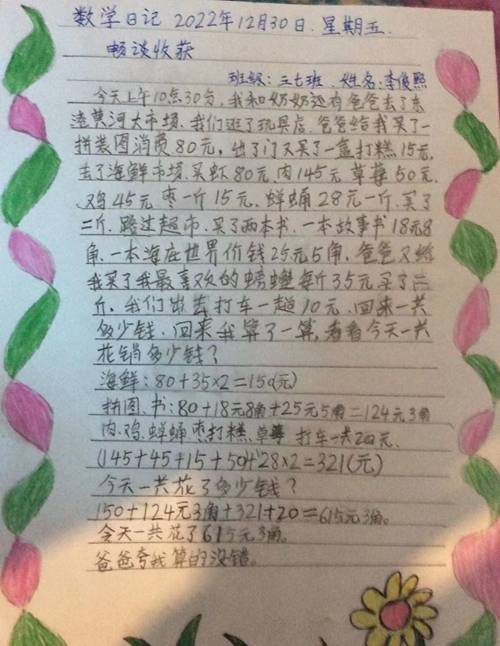 数学日记 2022年12月30日. 星期五.
畅谈收获
班级: 三七班. 姓名: 李俊熙
今天上午10点30分, 我和奶奶还有爸爸去了东
渣黄河大市场. 我们逛了玩具店, 爸爸给我买了一
拼装图消费80元, 出了门又买了一盒打糕15元,
去了海鲜市场. 买虾80元, 肉145元 草莓50元.
鸡45元. 枣一斤15元. 蝉蛹28元一斤. 买了
二斤. 路过超市. 买了两本书. 一本故事书18元8
角. 一本海底世界价钱25元5角. 爸爸又给
我买了我最喜欢的螃蟹每斤35元买了二
斤. 我们出去打车一趟10元. 回来一共
多少钱. 回来我算了一算, 看看今天一共
花销多少钱?
海鲜: 80+35×2=150(元)
拼图.书: 80+18元8角+25元5角=124元3角
肉.鸡.蝉蛹 枣打糕.草莓 打车一共20元.
(145+45+15+50+28×2=321(元)
今天一共花了多少钱?
150+124元3角+321+20=615元3角.
今天一共花了615元3角.
爸爸夸我算的没错.